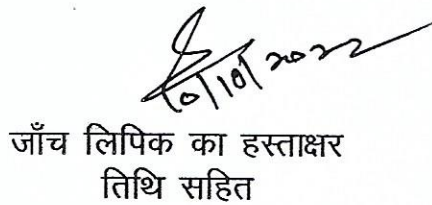 10/10/2022
जाँच लिपिक का हस्ताक्षर
तिथि सहित